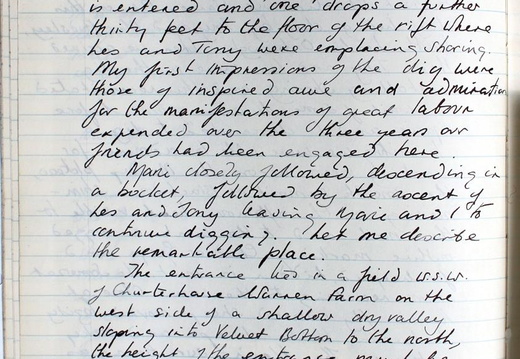 is entered and one drops a further
thirty feet to the floor of the rift where
Les and Tony were emplacing shoring.
My first impressions of the dig were
those of inspired awe and admiration
for the manifestations of great labour
expended over the three years our
friends had been engaged here.
Marie closely followed, descending in
a bocket, followed by the ascent of
Les and Tony leaving Marie and I to
continue digging. Let me describe
the remarkable place.
The entrance lies in a field W.S.W.
of Charterhouse Warren Farm on the
west side of a shallow dry valley
sloping into Velvet Bottom to the north,
the height of the entrance